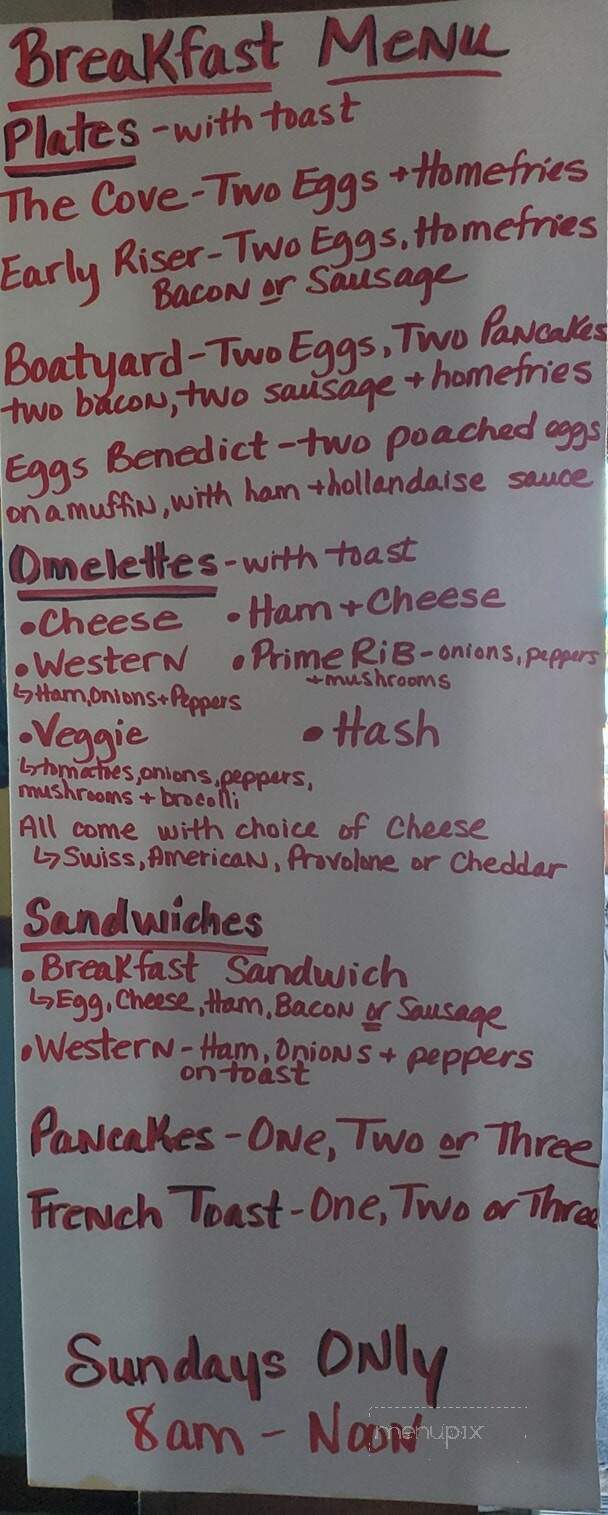 Breakfast Menu
Plates - with toast
The Cove - Two Eggs + Homefries
Early Riser - Two Eggs, Homefries
Bacon or Sausage
Boatyard - Two Eggs, Two Pancakes
two bacon, two sausage + homefries
Eggs Benedict - two poached eggs
on a muffin, with ham + hollandaise sauce
Omelettes - with toast
• Cheese • Ham + Cheese
• Western • Prime Rib - onions, peppers
+ mushrooms
↳ Ham, Onions + Peppers
• Veggie • Hash
↳ tomatoes, onions, peppers,
mushrooms + brocolli
All come with choice of Cheese
↳ Swiss, American, Provolone or Cheddar
Sandwiches
• Breakfast Sandwich
↳ Egg, Cheese, Ham, Bacon or Sausage
• Western - Ham, Onions + peppers
on toast
Pancakes - One, Two or Three
French Toast - One, Two or Three
Sundays Only
8am - Noon
menupix